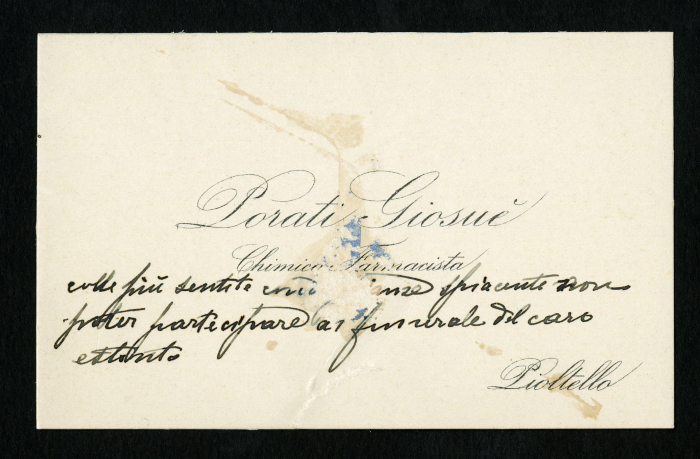 Porati Giosuè
Chimico Farmacista
colle più sentite spiacente non
poter partecipare ai funerale del caro
estinto
Pioltello